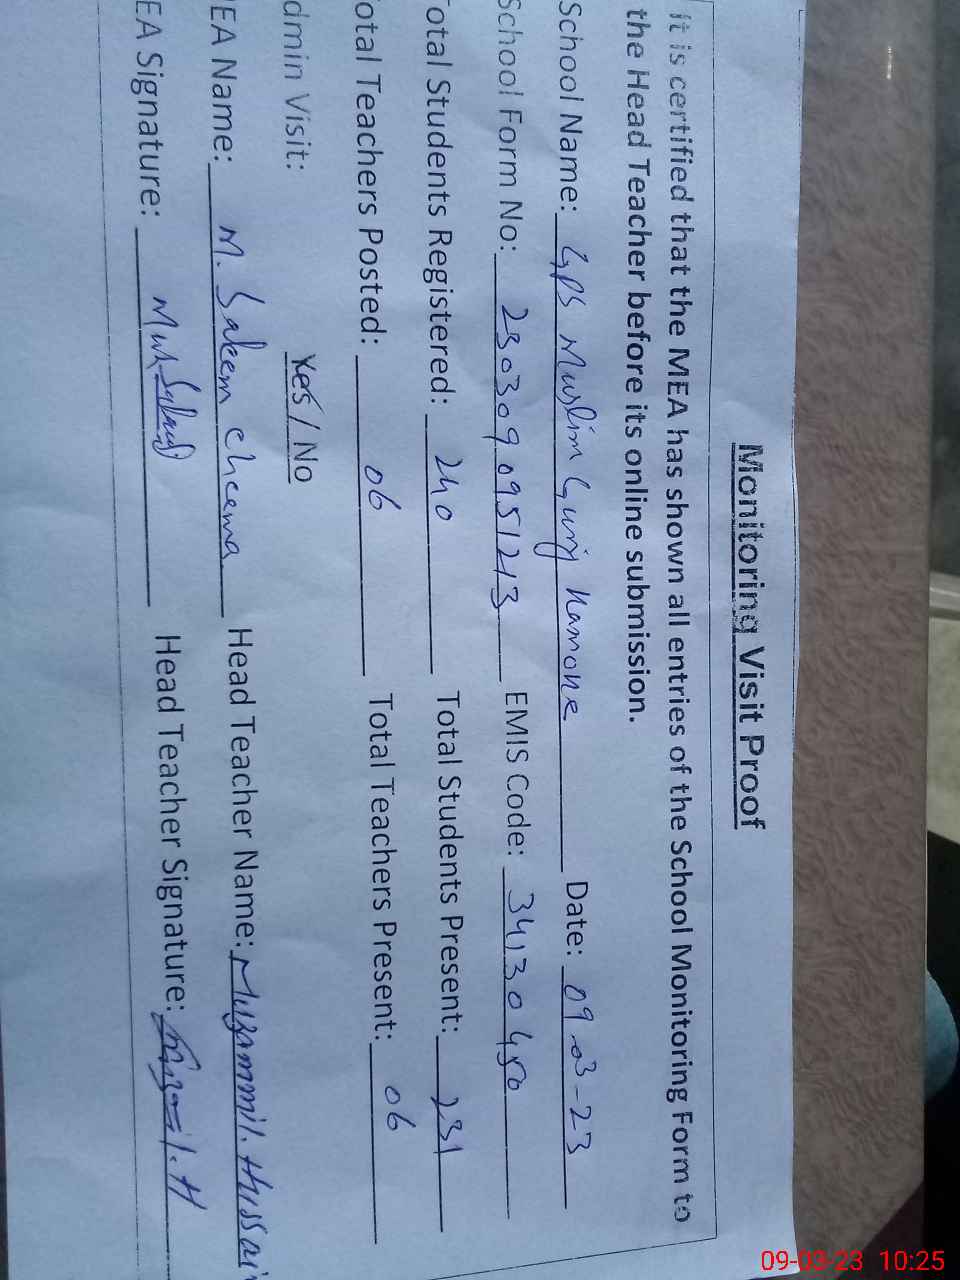 Monitoring Visit Proof
It is certified that the MEA has shown all entries of the School Monitoring Form to
the Head Teacher before its online submission.
School Name: GPS Muslim Gunj Kamoke Date: 09-03-23
School Form No: 2303090951213 EMIS Code: 34130450
otal Students Registered: 240 Total Students Present: 231
otal Teachers Posted: 06 Total Teachers Present: 06
dmin Visit: Yes / No
EA Name: M. Saleem cheema Head Teacher Name: Muzammil. Hussai
EA Signature: Head Teacher Signature:
09-03-23 10:25